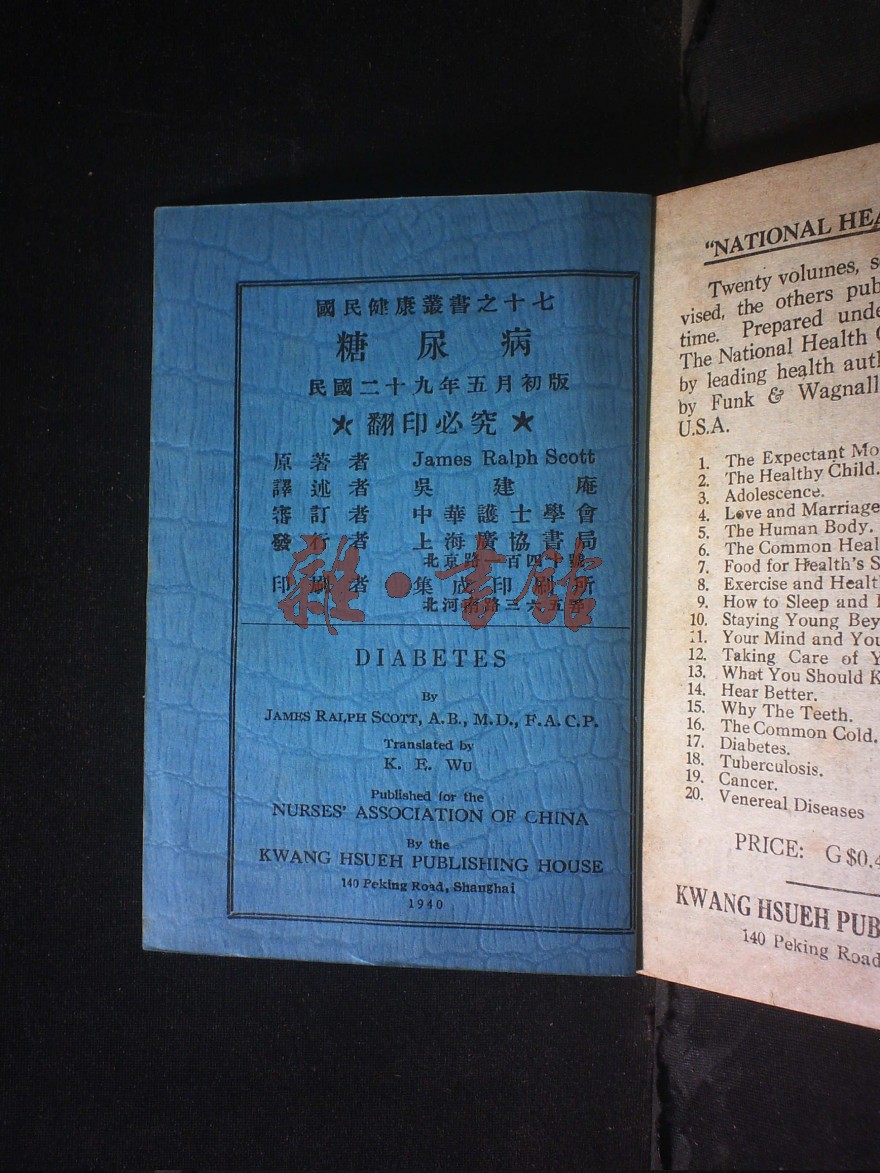 國民健康叢書之十七
糖尿病
民國二十九年五月初版
★翻印必究★
原著者 James Ralph Scott
譯述者 吳建庵
審訂者 中華護士學會
發行者 上海廣協書局
北京路一百四十號
印刷者 集成印刷所
北河南路三六五弄
雜·書館
DIABETES
By
JAMES RALPH SCOTT, A.B., M.D., F.A.C.P.
Translated by
K. E. WU
Published for the
NURSES' ASSOCIATION OF CHINA
By the
KWANG HSUEH PUBLISHING HOUSE
140 Peking Road, Shanghai
1940
"NATIONAL HEA
Twenty volumes, s
vised, the others pub
time. Prepared unde
The National Health C
by leading health auth
by Funk & Wagnall
U.S.A.
1. The Expectant Mo
2. The Healthy Child.
3. Adolescence.
4. Love and Marriage
5. The Human Body.
6. The Common Heal
7. Food for Health's S
8. Exercise and Healt
9. How to Sleep and
10. Staying Young Bey
11. Your Mind and You
12. Taking Care of Y
13. What You Should K
14. Hear Better.
15. Why The Teeth.
16. The Common Cold.
17. Diabetes.
18. Tuberculosis.
19. Cancer.
20. Venereal Diseases
PRICE: G$0.4
KWANG HSUEH PUB
140 Peking Road